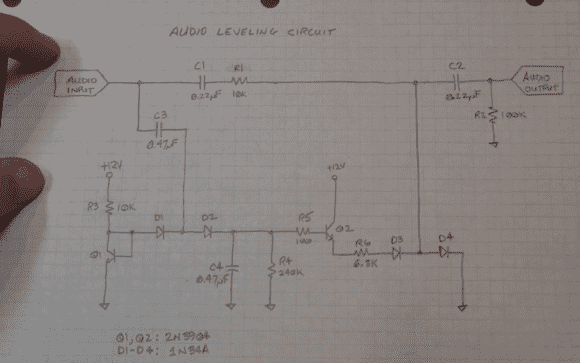 AUDIO LEVELING CIRCUIT
AUDIO
INPUT
C1
0.22µF
R1
10K
C2
0.22µF
AUDIO
OUTPUT
R2 100K
C3
0.47µF
+12V
R3 10K
Q1
D1
D2
C4
0.47µF
R4
240K
R5
+12V
Q2
R6
6.8K
D3
D4
Q1,Q2: 2N3904
D1-D4: 1N34A